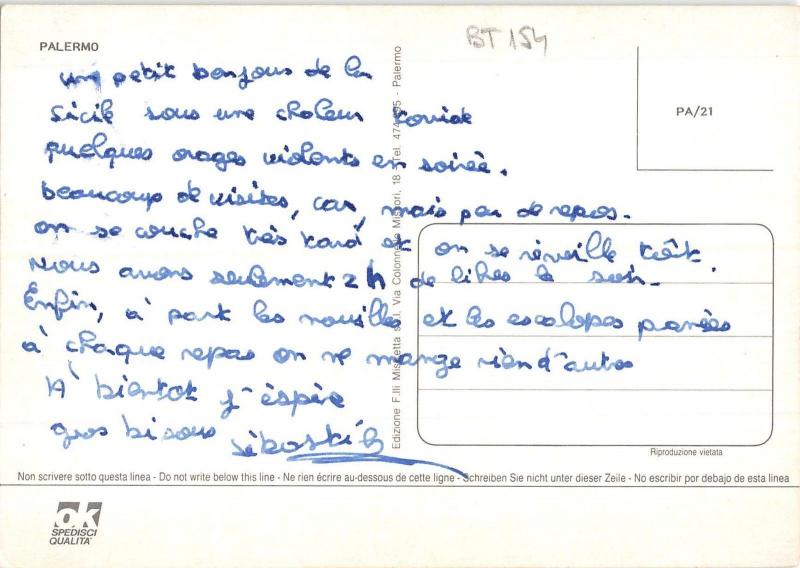 BT 154
PALERMO
PA/21
un petit bonjour de la
Sicile sous une chaleur torride
quelques orages violents en soirée.
beaucoup de visites, car, mais peu de repos.
on se couche très tard et on se réveille tôt.
Nous avons seulement 2h de libres le soir.
Enfin, à part les nouilles et les escalopes panées
à chaque repas on ne mange rien d'autres
A bientot j'éspère
gros bisous
Edizione F.lli Misuretta s.r.l. Via Colonnello Missori, 18 - Tel. - Palermo
Riproduzione vietata
Non scrivere sotto questa linea - Do not write below this line - Ne rien écrire au-dessous de cette ligne - Schreiben Sie nicht unter dieser Zeile - No escribir por debajo de esta linea
ok
SPEDISCI
QUALITA'